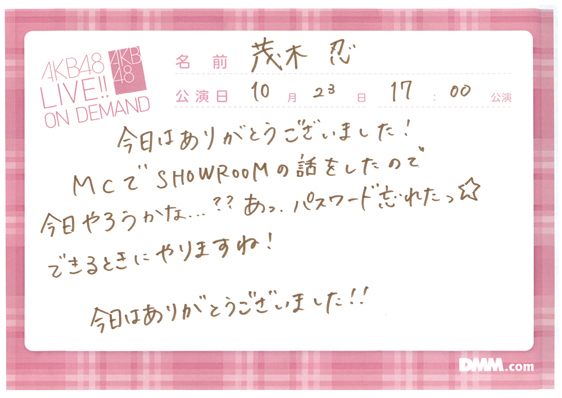 AKB48
LIVE!!
ON DEMAND
AKB
48
名 前 茂木 忍
公演日 10 月 23 日 17 : 00 公演
今日はありがとうございました!
MCでSHOWROOMの話をしたので
今日やろうかな...?? あっ、パスワード忘れたっ☆
できるときにやりますね!
今日はありがとうございました!!
DMM.com